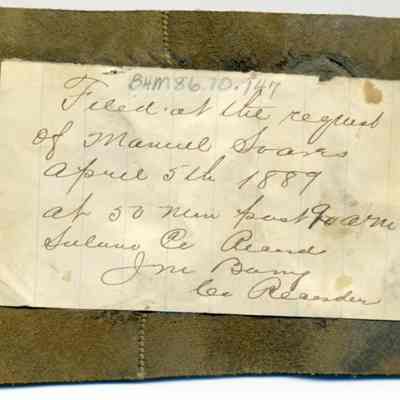 BHM86.70.747
Filed at the request
of Manuel Soares
April 5th 1889
at 50 min past 9 a m
Solano Co
Co Recorder